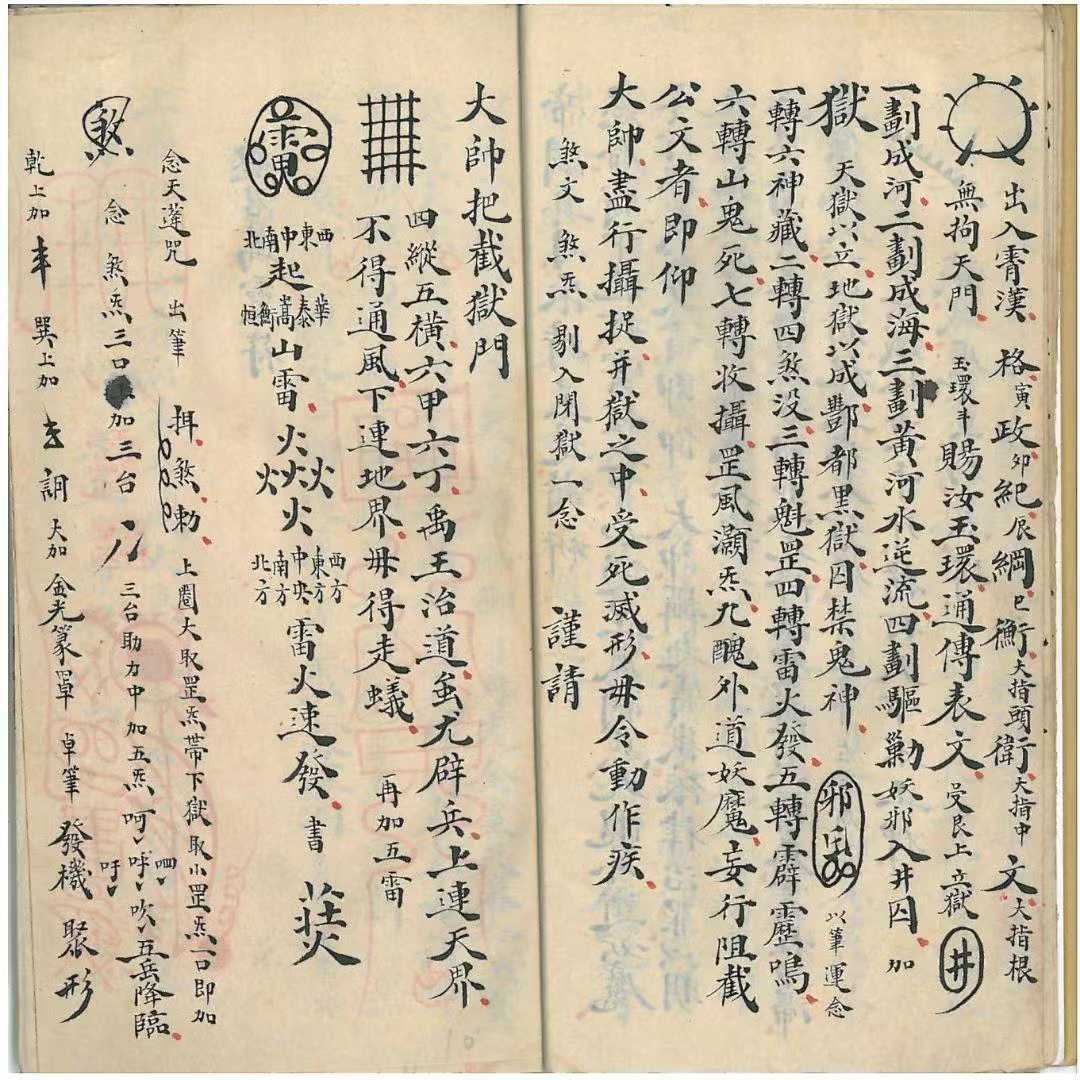 出入霄漢 格寅政卯紀辰綱巳衡大指頭衛大指中文大指根
無拘天門 玉環斗賜汝玉環通傳表文 艮上立獄井
一劃成河二劃成海三劃黃河水逆流四劃驅勦妖邪入井囚 加
獄 天獄以立地獄以成酆都黑獄囚禁鬼神 邪鬼 以筆運念
一轉六神藏二轉四煞没三轉魁罡四轉雷火發五轉霹靂鳴
六轉山鬼死七轉收攝罡風灝炁九醜外道妖魔妄行阻截
公文者即仰
大帥盡行攝捉并獄之中受死滅形毋令動作疾
煞文煞炁 剔入閉獄一念 謹請
大帥把截獄門
四縱五橫六甲六丁禹王治道蚩尤辟兵上連天界
不得通風下連地界毋得走蟻 再加五雷
西東中南北起華泰嵩衡恒山雷火炎火火西方東方中央南方北方雷火速發 書
念天蓬咒 出筆 煞勅 上圈大取罡炁帶下獄取小罡炁一口即加
煞 念 煞炁三口加三台 三台助力中加五炁呵呼呬吹吁五岳降臨
乾上加 巽上加 大加金光篆罩 卓筆 發機聚形